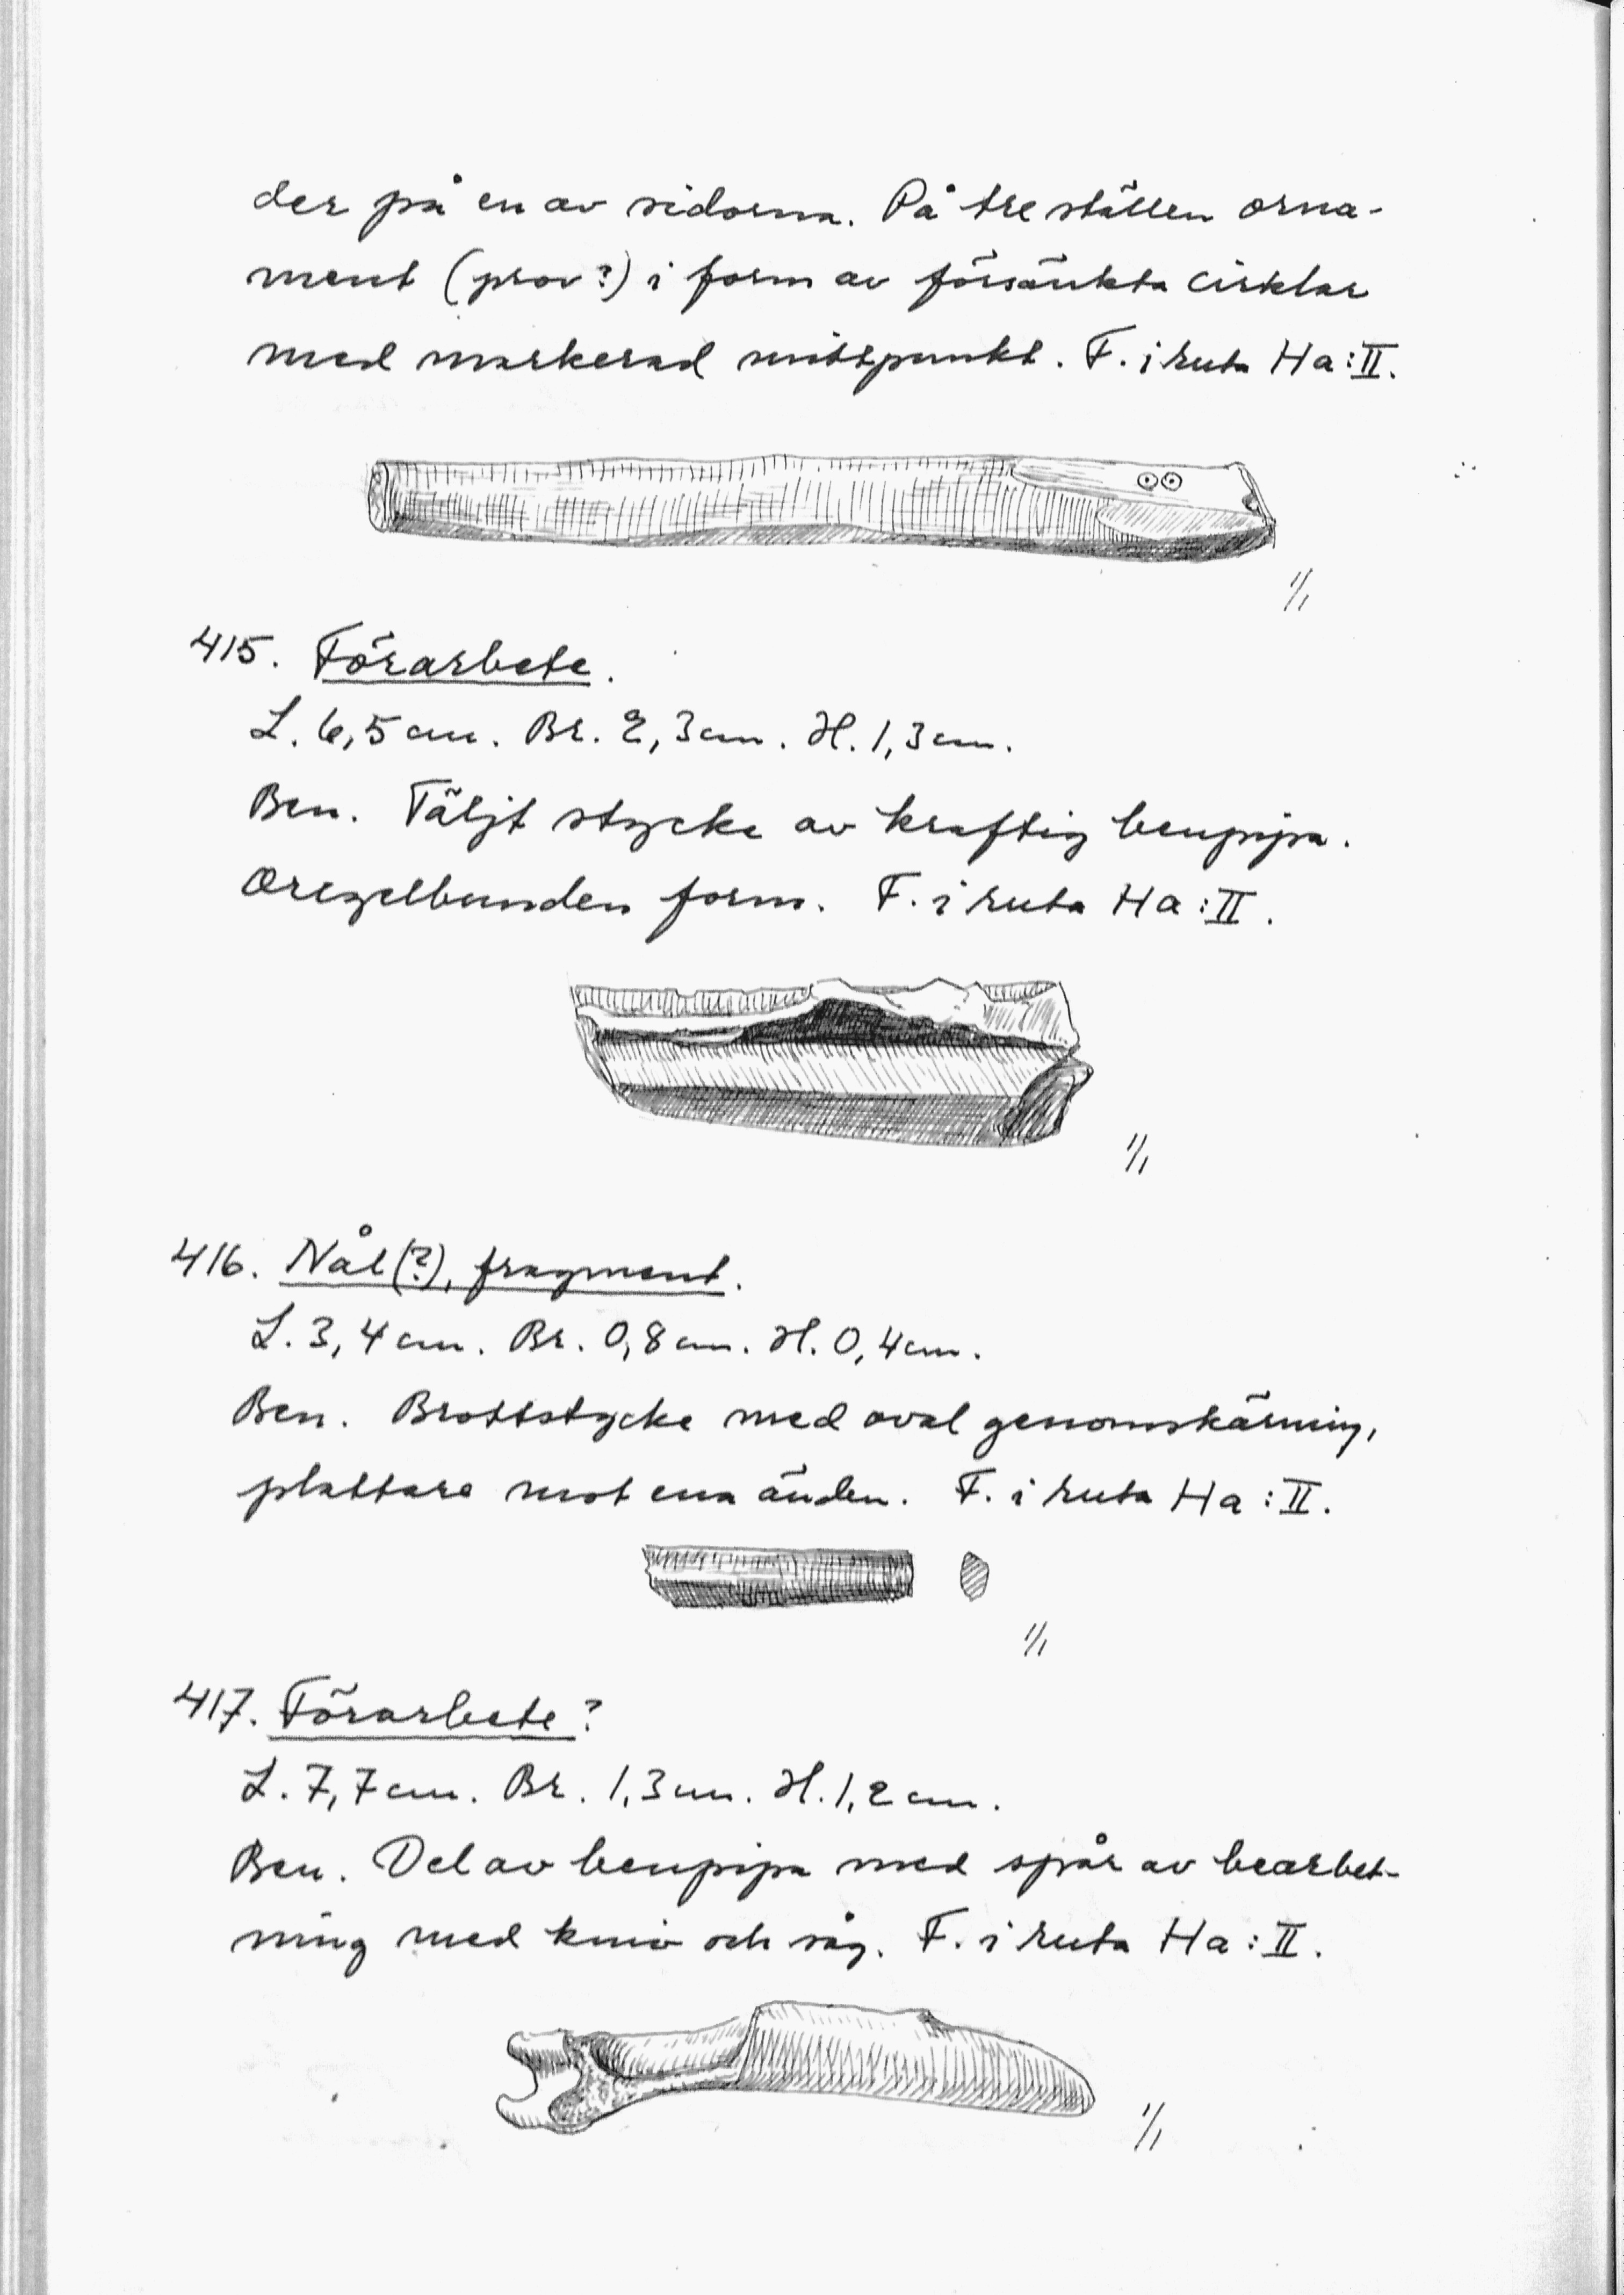 der på en av sidorna. På tre ställen orna-
ment (prov?) i form av försänkta cirklar
med markerad mittpunkt. F. i ruta Ha:II.
1/1
415. Förarbete.
L. 6,5 cm. Br. 2,3 cm. H. 1,3 cm.
Ben. Täljt stycke av kraftig benpipa.
Oregelbunden form. F. i ruta Ha:II.
1/1
416. Nål(?), fragment.
L. 3,4 cm. Br. 0,8 cm. H. 0,4 cm.
Ben. Brottstycke med oval genomskärning,
plattare mot ena änden. F. i ruta Ha:II.
1/1
417. Förarbete?
L. 7,7 cm. Br. 1,3 cm. H. 1,2 cm.
Ben. Del av benpipa med spår av bearbet-
ning med kniv och såg. F. i ruta Ha:II.
1/1